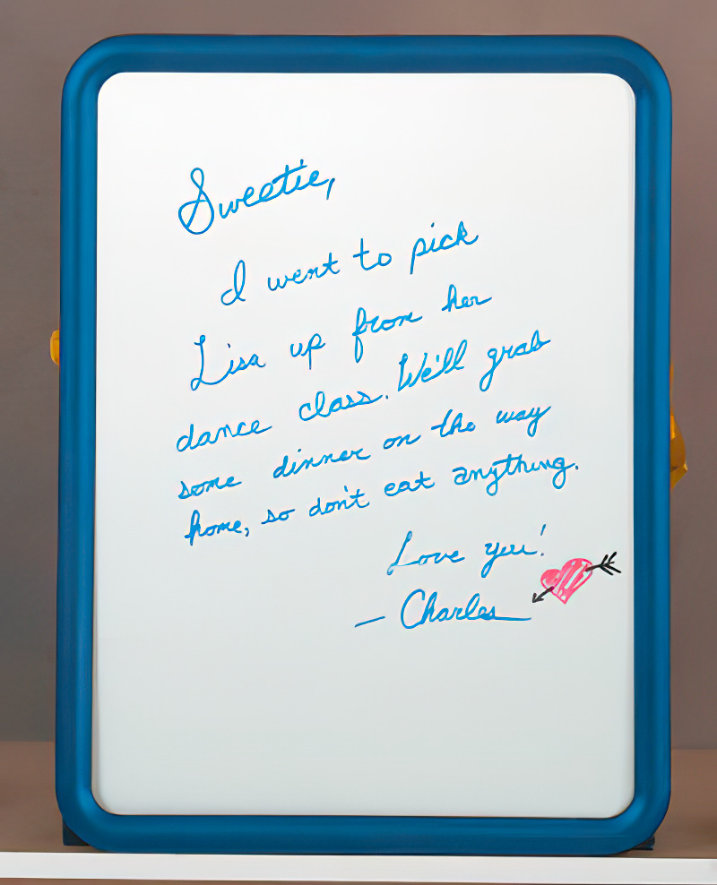 Sweetie,
I went to pick
Lisa up from her
dance class. We'll grab
some dinner on the way
home, so don't eat anything.
Love you!
— Charles